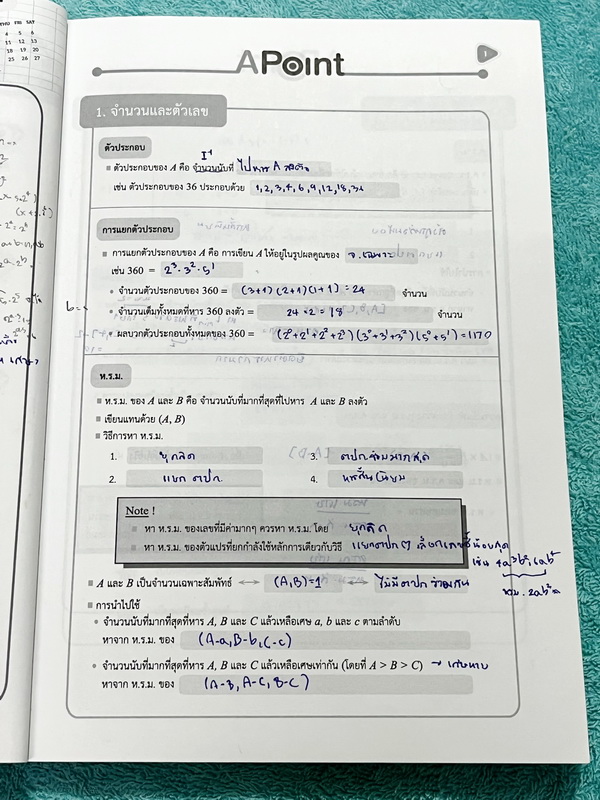 THU FRI SAT
4 5 6
11 12 13
18 19 20
25 26 27
APoint
1
1. จำนวนและตัวเลข
ตัวประกอบ
I⁺
ตัวประกอบของ A คือ จำนวนนับที่ ไปหาร A ลงตัว
เช่น ตัวประกอบของ 36 ประกอบด้วย 1,2,3,4,6,9,12,18,36
การแยกตัวประกอบ
การแยกตัวประกอบของ A คือ การเขียน A ให้อยู่ในรูปผลคูณของ จ.เฉพาะ
เช่น 360 = 2³·3²·5¹
จำนวนตัวประกอบของ 360 = (3+1)(2+1)(1+1) = 24 จำนวน
จำนวนเต็มทั้งหมดที่หาร 360 ลงตัว = จำนวน
ผลบวกตัวประกอบทั้งหมดของ 360 = (2⁰+2¹+2²+2³)(3⁰+3¹+3²)(5⁰+5¹) = 1170
ห.ร.ม.
ห.ร.ม. ของ A และ B คือ จำนวนนับที่มากที่สุดที่ไปหาร A และ B ลงตัว
เขียนแทนด้วย (A, B)
วิธีการหา ห.ร.ม.
1. ยุคลิด 3.
2. แยก ตปก. 4.
Note !
หา ห.ร.ม. ของเลขที่มีค่ามากๆ ควรหา ห.ร.ม. โดย ยุคลิด
หา ห.ร.ม. ของตัวแปรที่ยกกำลังใช้หลักการเดียวกับวิธี แยกตปก
A และ B เป็นจำนวนเฉพาะสัมพัทธ์ ↔ (A,B)=1 ↔ ไม่มีตปก ร่วมกัน
การนำไปใช้
จำนวนนับที่มากที่สุดที่หาร A, B และ C แล้วเหลือเศษ a, b และ c ตามลำดับ
หาจาก ห.ร.ม. ของ (A-a,B-b,C-c)
จำนวนนับที่มากที่สุดที่หาร A, B และ C แล้วเหลือเศษเท่ากัน (โดยที่ A > B > C)
หาจาก ห.ร.ม. ของ (A-B, A-C, B-C)